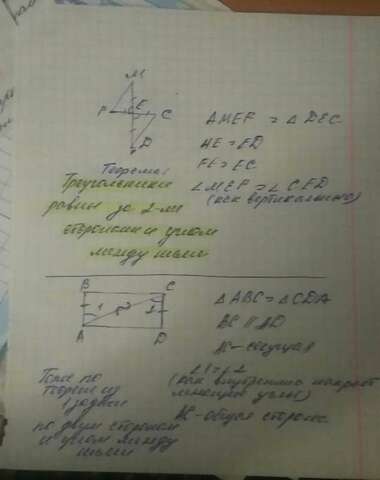 M
P E C
D
△MEP = △DEC
ME = ED
PE = EC
∠MEP = ∠CED
(как вертикально)
Теорема:
Треугольники
равны за 2-ми
сторонами и углом
между ними
B C
1 2
A D
△ABC = △CDA
BC || AD
AC - секущая
∠1 = ∠2
(как внутренние накрест
лежащие углы)
AC - общая сторона
Тоже по
теореме из
1 задачи
по двум сторонам
и углом между
ними